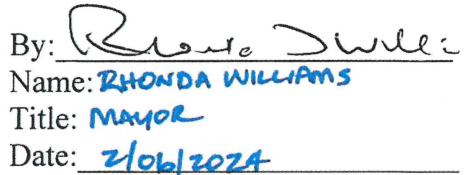 By: Rhonda Willi
Name: RHONDA WILLIAMS
Title: MAYOR
Date: 2/06/2024